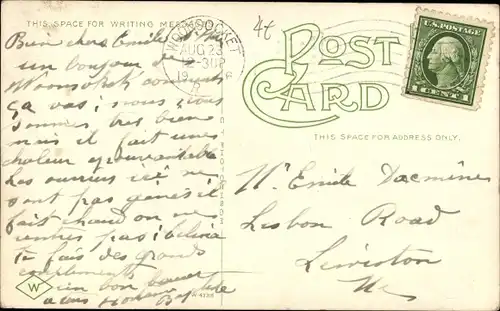 THIS SPACE FOR WRITING MESSAGE
Bien chers Emile
un bonjour de
Woonsocket comment
ça va; nous nous
sommes tres bien
mais il fait une
chaleur epouvantable
Les ouvriers ici ne
sont pas gênés il
fait chaud on ne
rentres pas;
te fais des grands
compliments
un bon baiser
a tous
W
W-4788
SOCKET
AUG 23
12-30P
R.I.
4¢
POST
CARD
THIS SPACE FOR ADDRESS ONLY.
U.S. POSTAGE
1 CENT 1
Mr. Emile
Lisbon Road
Lewiston
Me